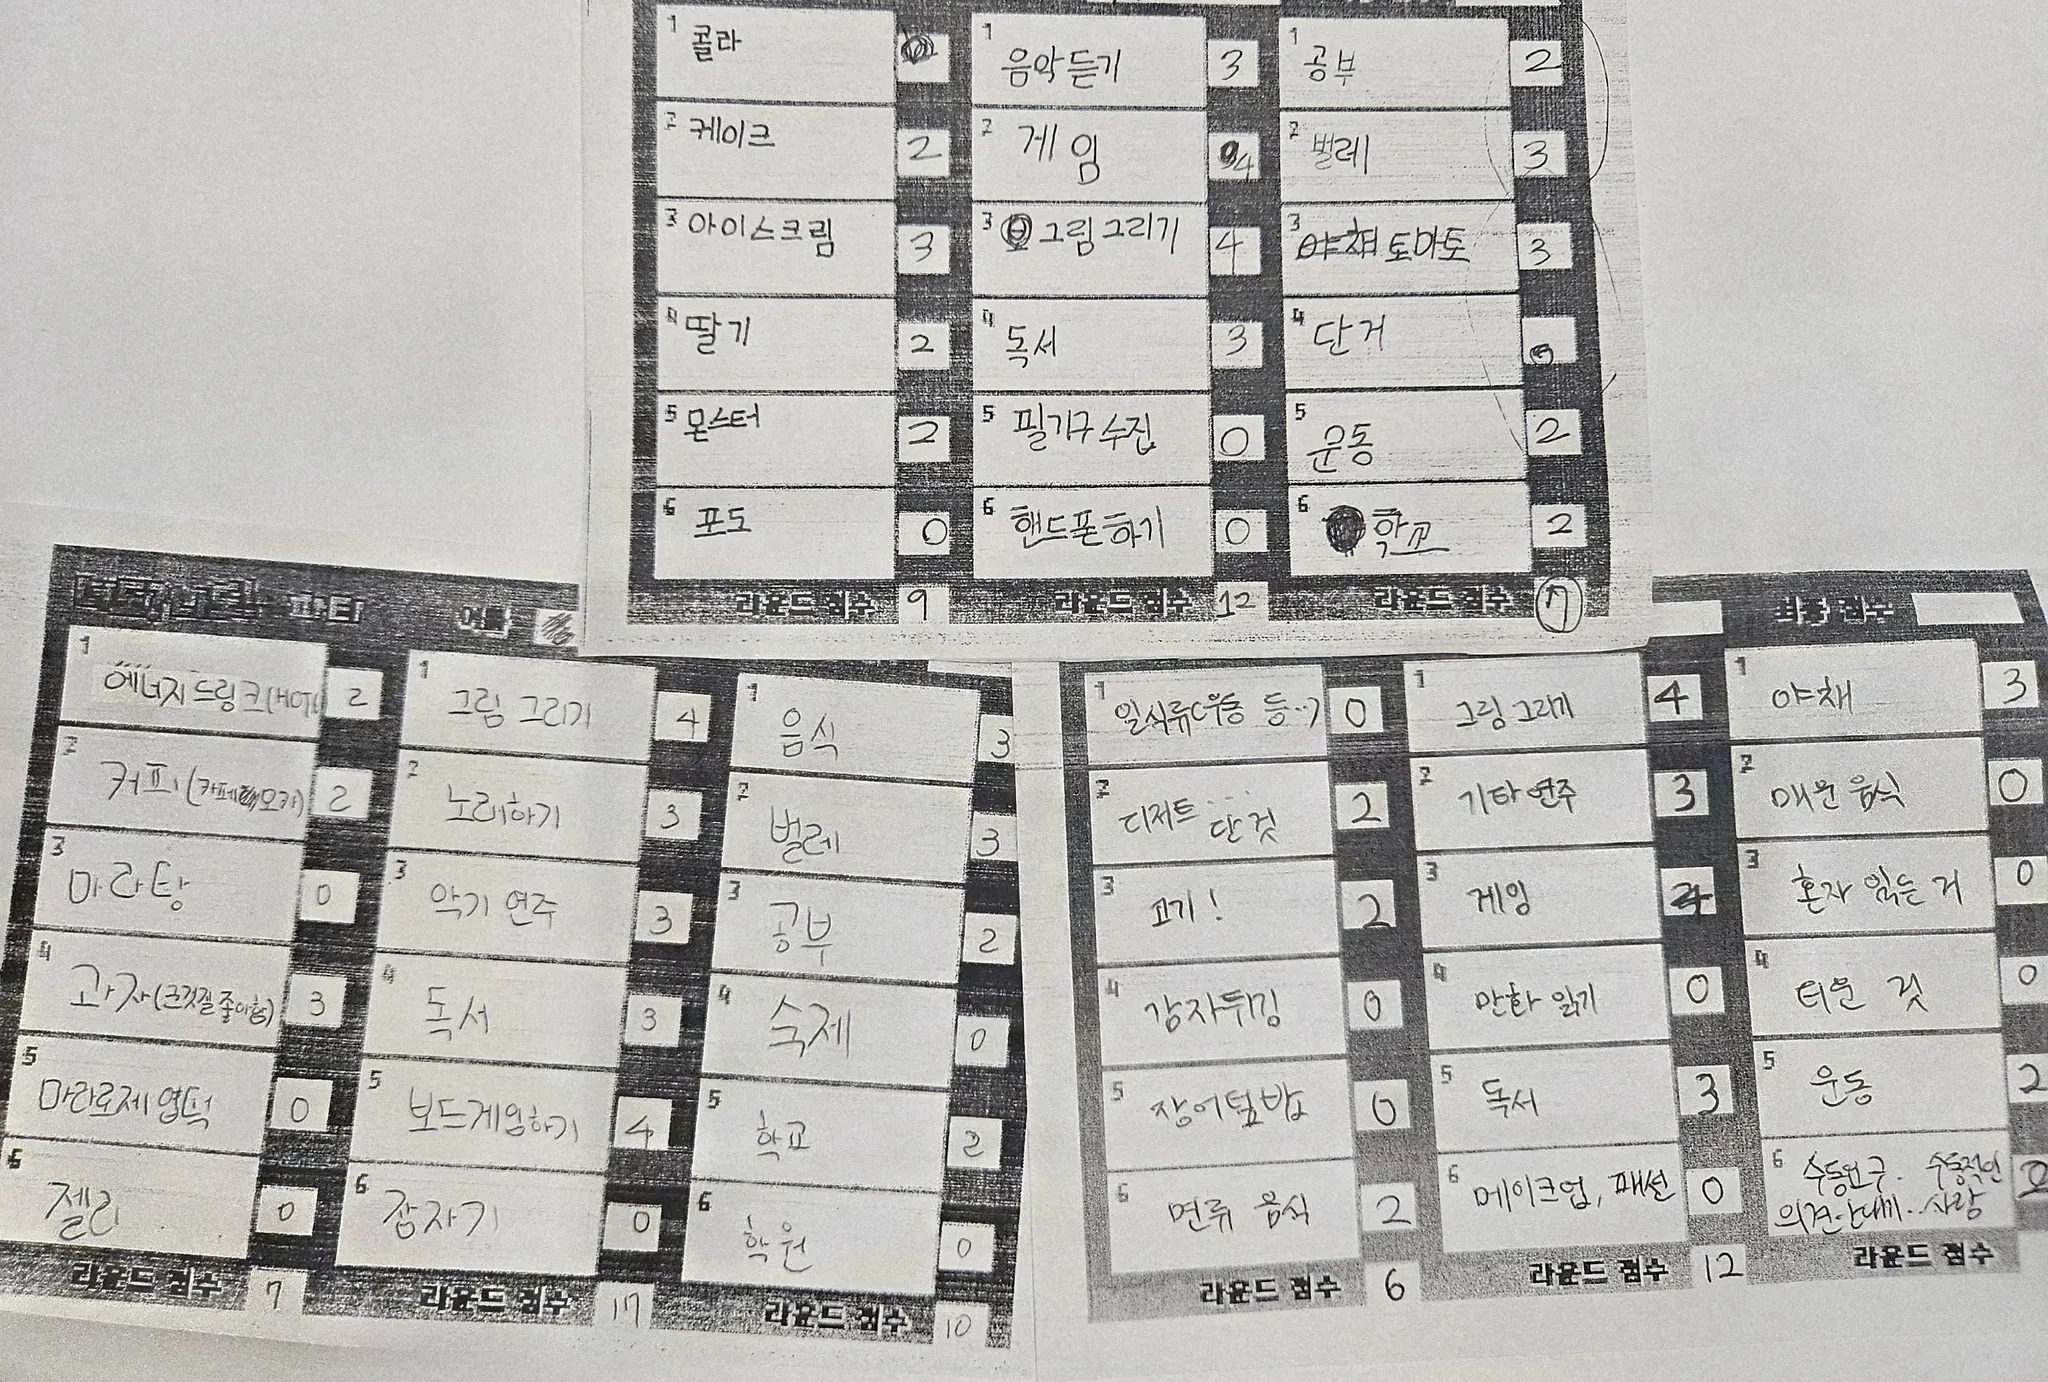 1 콜라
2 케이크 2
3 아이스크림 3
4 딸기 2
5 몬스터 2
6 포도 0
라운드 점수 9
1 음악듣기 3
2 게임 4
3 그림그리기 4
4 독서 3
5 필기구 수집 0
6 핸드폰하기 0
라운드 점수 12
1 공부 2
2 벌레 3
3 야채 토마토 3
4 단거
5 운동 2
6 학교 2
라운드 점수
파티 이름
1 에너지 드링크 2
2 커피(카페 모카) 2
3 마라탕 0
4 과자 3
5 마라로제 엽떡 0
6 젤리 0
라운드 점수 7
1 그림 그리기 4
2 노래하기 3
3 악기 연주 3
4 독서 3
5 보드게임하기 4
6 잠자기 0
라운드 점수 17
1 음식 3
2 벌레 3
3 공부 2
4 숙제 0
5 학교 2
6 학원 0
라운드 점수 10
최종 점수
1 일식류(우동 등..) 0
2 디저트... 단 것 2
3 고기! 2
4 감자튀김 0
5 장어덮밥 0
6 면류 음식 2
라운드 점수 6
1 그림 그리기 4
2 기타 연주 3
3 게임
4 만화 읽기 0
5 독서 3
6 메이크업, 패션 0
라운드 점수 12
1 야채 3
2 매운 음식 0
3 혼자 있는 거 0
4 더운 것 0
5 운동 2
6 수동적인
사람
라운드 점수